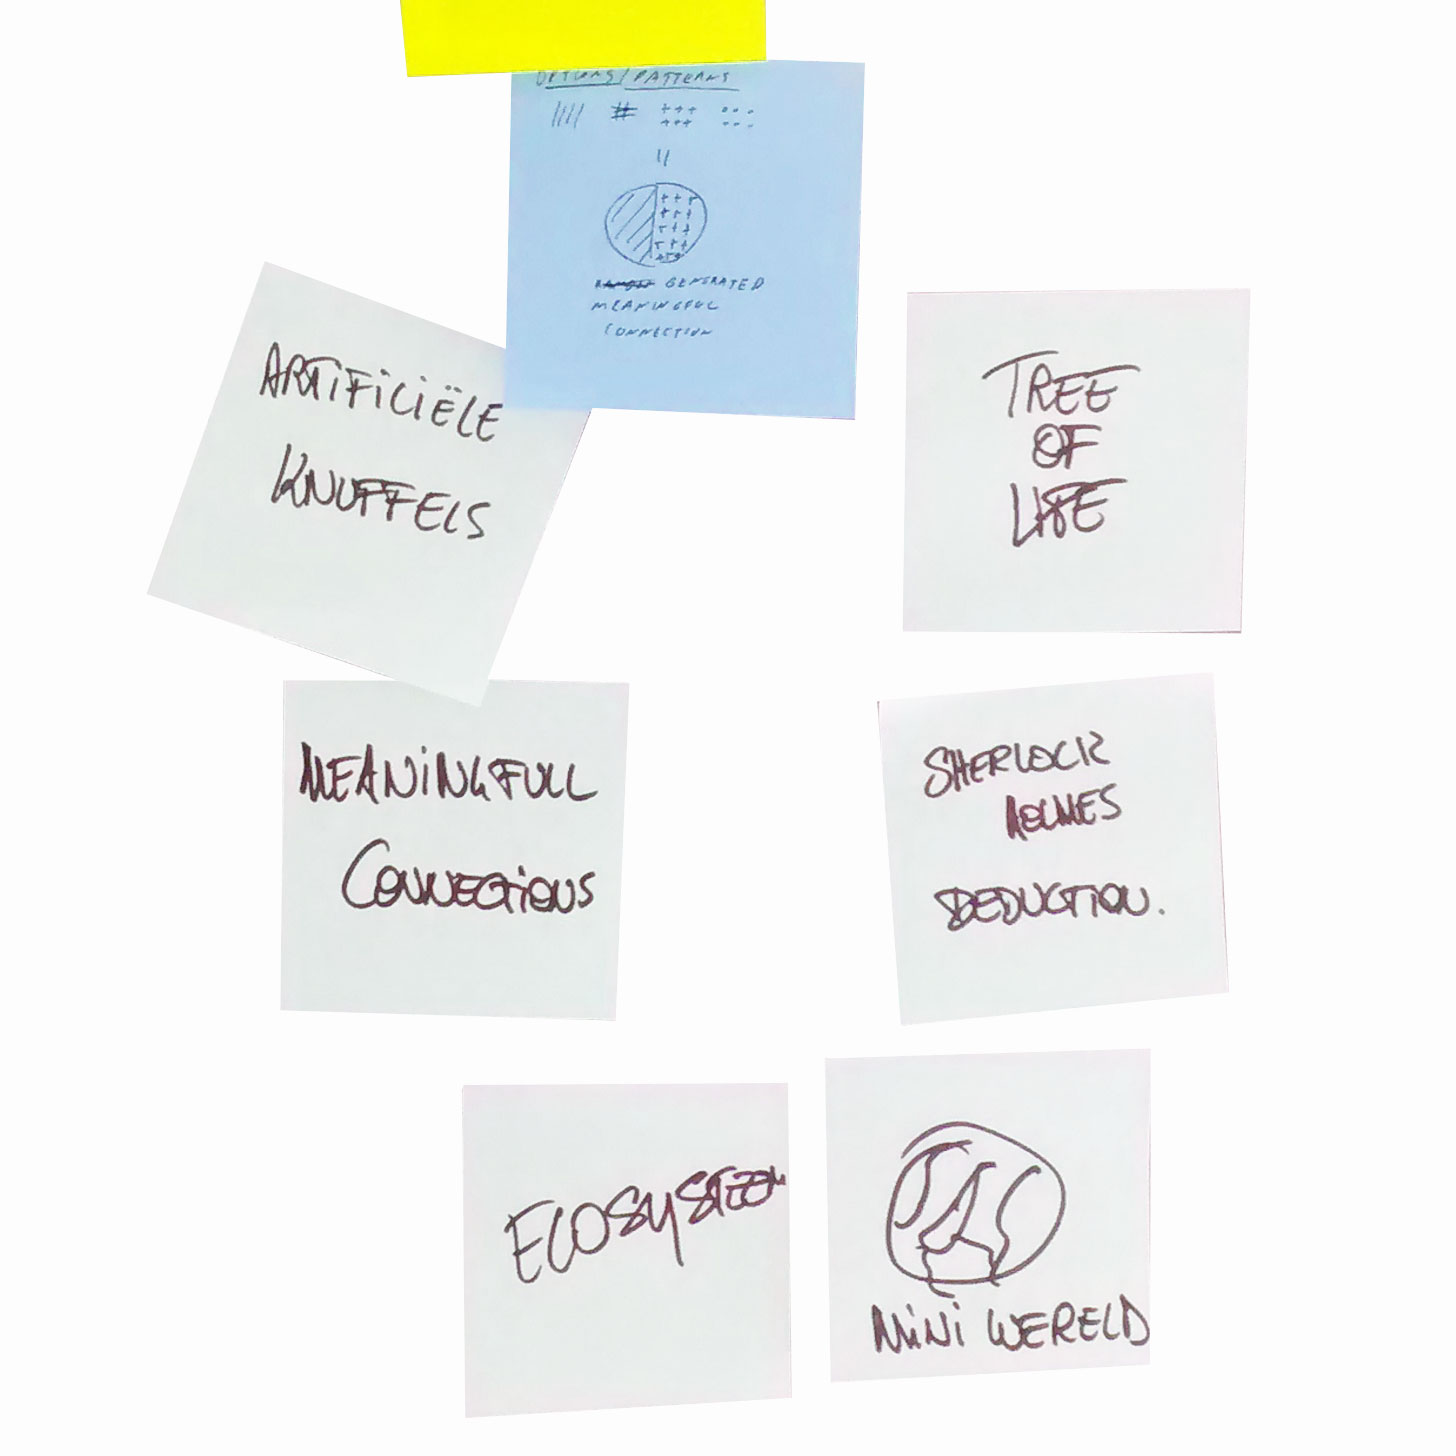 OPTIONS/PATTERNS
GENERATED
MEANINGFUL
CONNECTION
ARTIFICIËLE
KNUFFELS
TREE
OF
LIFE
MEANINGFULL
CONNECTIONS
SHERLOCK
HOLMES
DEDUCTION.
ECOSYSTEEM
MINI WERELD